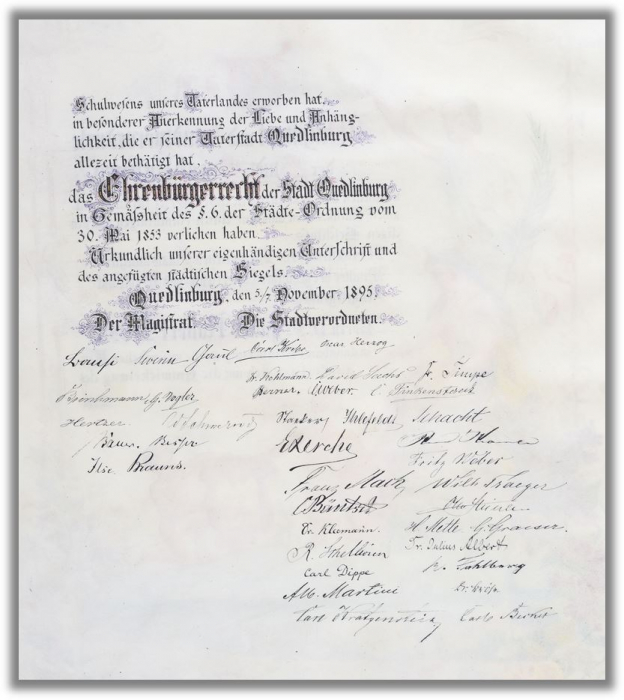 Schulwesens unseres Vaterlandes erworben hat,
in besonderer Anerkennung der Liebe und Anhäng-
lichkeit, die er seiner Vaterstadt Quedlinburg
allezeit bethätigt hat,
das Ehrenbürgerrecht der Stadt Quedlinburg
in Gemäßheit des §. 6. der Städte-Ordnung vom
30. Mai 1853 verliehen haben.
Urkundlich unserer eigenhändigen Unterschrift und
des angefügten städtischen Siegels.
Quedlinburg, den 5/7 November 1895.
Der Magistrat. Die Stadtverordneten.
Carl Krebs Oscar Herzog
Dr. Kohlmann David Sachs Fr. Timpe
Brinkmann, G. Vogler Weber
Hertzer Schacht
Braun.
Fritz Weber
Franz Mack, Willh Traeger
H. Mette G. Graeser.
Fr. Julius Albert
Carl Dippe
Alb. Martini
Carl Kratzenstein Carl Becker